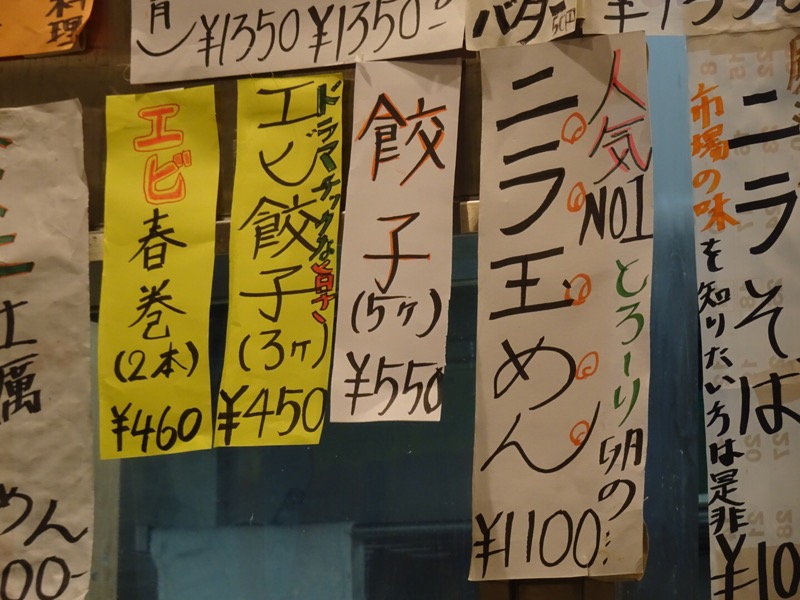 料理
¥1350 ¥1350-
バター
50円
エビ
春巻
(2本)
¥460
ドラマチックな旨さ
エビ餃子
(3ヶ)
¥450
餃子
(5ヶ)
¥550
人気NO1とろ〜り卵の…
ニラ玉めん
¥1100
ニラそば
市場の味を知りたい方は是非
¥10
めん
00-